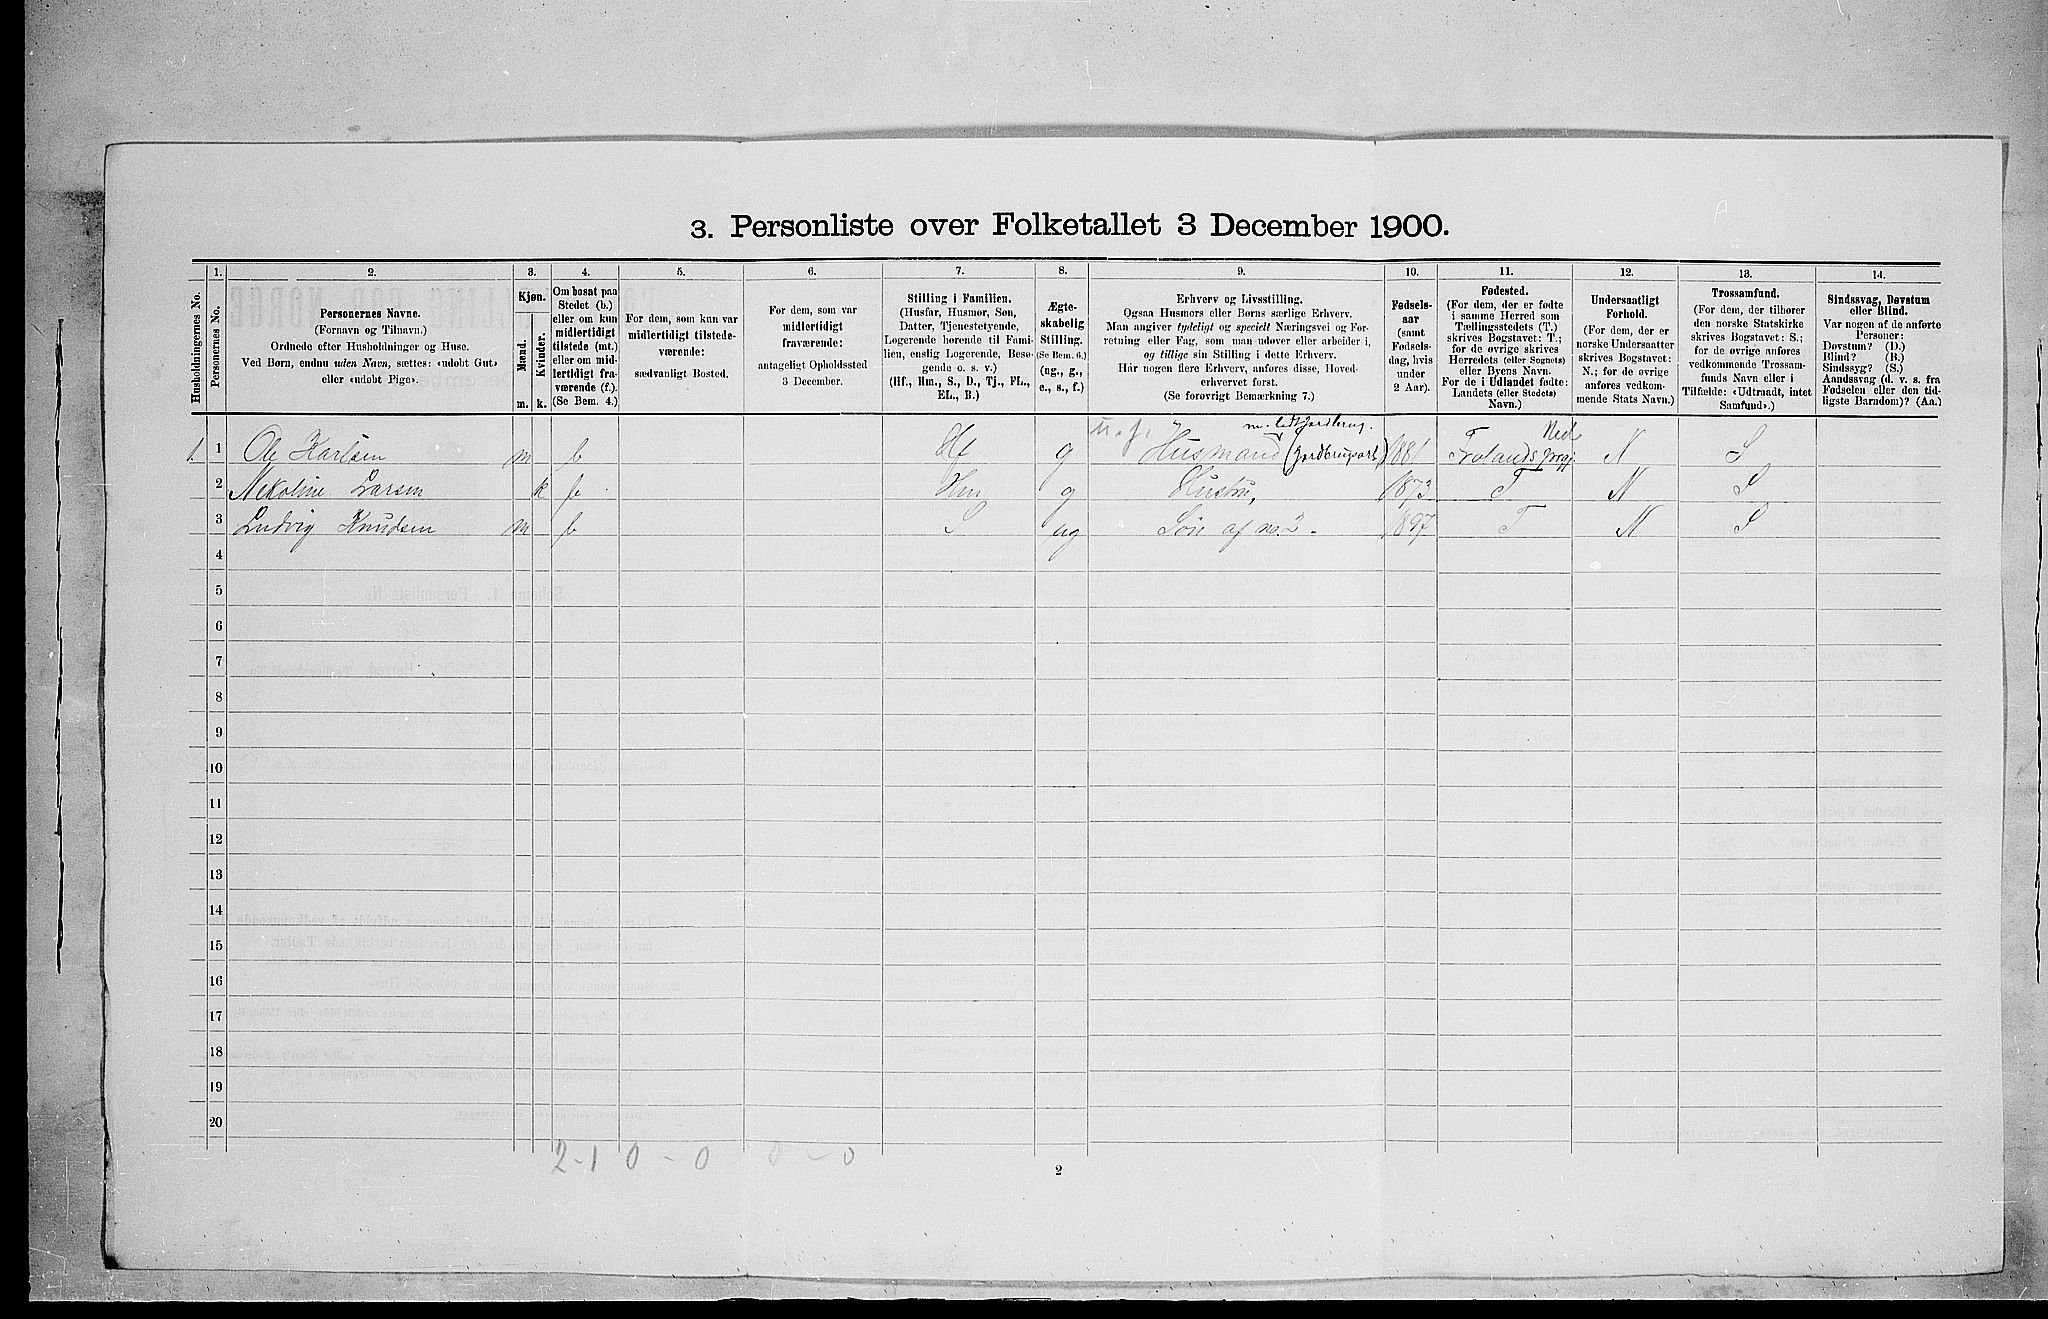 3. Personliste over Folketallet 3 December 1900.
1. 2. 3. 4. 5. 6. 7. 8. 9. 10. 11. 12. 13. 14.
Husholdningernes No.
Personernes No.
Personernes Navne.
(Fornavn og Tilnavn.)
Ordnede efter Husholdninger og Huse.
Ved Børn, endnu uden Navn, sættes: «udøbt Gut»
eller «udøbt Pige».
Kjøn.
Mænd.
Kvinder.
m. k.
Om bosat paa
Stedet (b.)
eller om kun
midlertidigt
tilstede (mt.)
eller om mid-
lertidigt fra-
værende (f.)
(Se Bem. 4.)
For dem, som kun var
midlertidigt tilstede-
værende:
sædvanligt Bosted.
For dem, som var
midlertidigt
fraværende:
antageligt Opholdssted
3 December.
Stilling i Familien.
(Husfar, Husmor, Søn,
Datter, Tjenestetyende,
Logerende hørende til Fami-
lien, enslig Logerende, Besø-
gende o. s. v.)
(Hf., Hm., S., D., Tj., FL.,
EL., B.)
Ægte-
skabelig
Stilling.
(Se Bem. 6.)
(ug., g.,
e., s., f.)
Erhverv og Livsstilling.
Ogsaa Husmors eller Børns særlige Erhverv.
Man angiver tydeligt og specielt Næringsvei og For-
retning eller Fag, som man udøver eller arbeider i,
og tillige sin Stilling i dette Erhverv.
Har nogen flere Erhverv, anføres disse, Hoved-
erhvervet først.
(Se forøvrigt Bemærkning 7.)
Fødsels-
aar
(samt
Fødsels-
dag, hvis
under
2 Aar).
Fødested.
(For dem, der er fødte
i samme Herred som
Tællingsstedets (T.)
skrives Bogstavet: T.;
for de øvrige skrives
Herredets (eller Sognets)
eller Byens Navn.
For de i Udlandet fødte:
Landets (eller Stedets)
Navn.)
Undersaatligt
Forhold.
(For dem, der er
norske Undersaatter
skrives Bogstavet:
N.; for de øvrige
anføres vedkom-
mende Stats Navn.)
Trossamfund.
(For dem, der tilhører
den norske Statskirke
skrives Bogstavet: S.;
for de øvrige anføres
vedkommende Trossam-
funds Navn eller i
Tilfælde: «Udtraadt, intet
Samfund».)
Sindssvag, Døvstum
eller Blind.
Var nogen af de anførte
Personer:
Døvstum? (D.)
Blind? (B.)
Sindssyg? (S.)
Aandssvag (d. v. s. fra
Fødselen eller den tid-
ligste Barndom)? (Aa.)
m. lidt jordbrug. Ned.
1. 1 Ole Karlsen m b Hf g Husmand (Jordbrugsarb) 1881 Frolands prgj N S
2 Nikoline Larsen k b Hm g Hustru, 1873 T N S
3 Ludvig Knudsen m b S ug Søn af no. 2. 1897 T N S
4
5
6
7
8
9
10
11
12
13
14
15
16
17
18
19
20
2-1 0-0 0-0
2